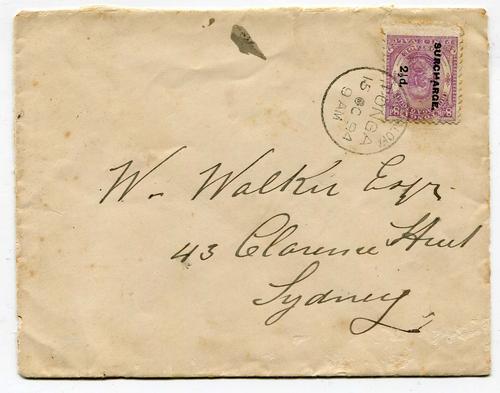 SURCHARGE.
2½d.
TONGA
15 OC 94
9 AM
W. Walker Esqr.
43 Clarence Street
Sydney